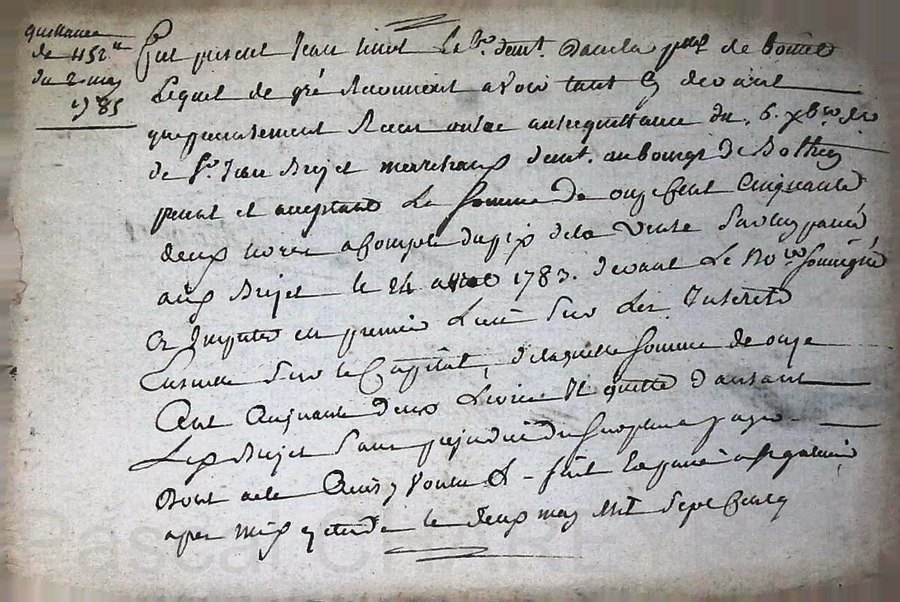 quittance
de 452 ₶
du 2 may
1785
Fut present Jean Lab.r demt. dans la de
Lequel de gré Reconnoit avoir tant cy devant
que presentement Receu outre autre quittance du 6. xbre d.er
de Sr. Jean Brejet marchand demt. au bourg de Bothey
pnt et acceptant La Somme de onze Cent Cinquante
deux livres a Compte du prix de la vente par luy passée
aud Brejet le 24 avril 1783. devant Le No.re Soussigné
Et Imputée en premier Lieu Sur Les Interets
Ensuitte Sur le Capital, de laquelle Somme de onze
Cent Cinquante deux Livres Il quitte d'autant
Led Brejet Sans prejudice du Surplus
Dont acte voulu & - fait Et passé a St galmier
apres midy etude le deux may Mil Sept Cent